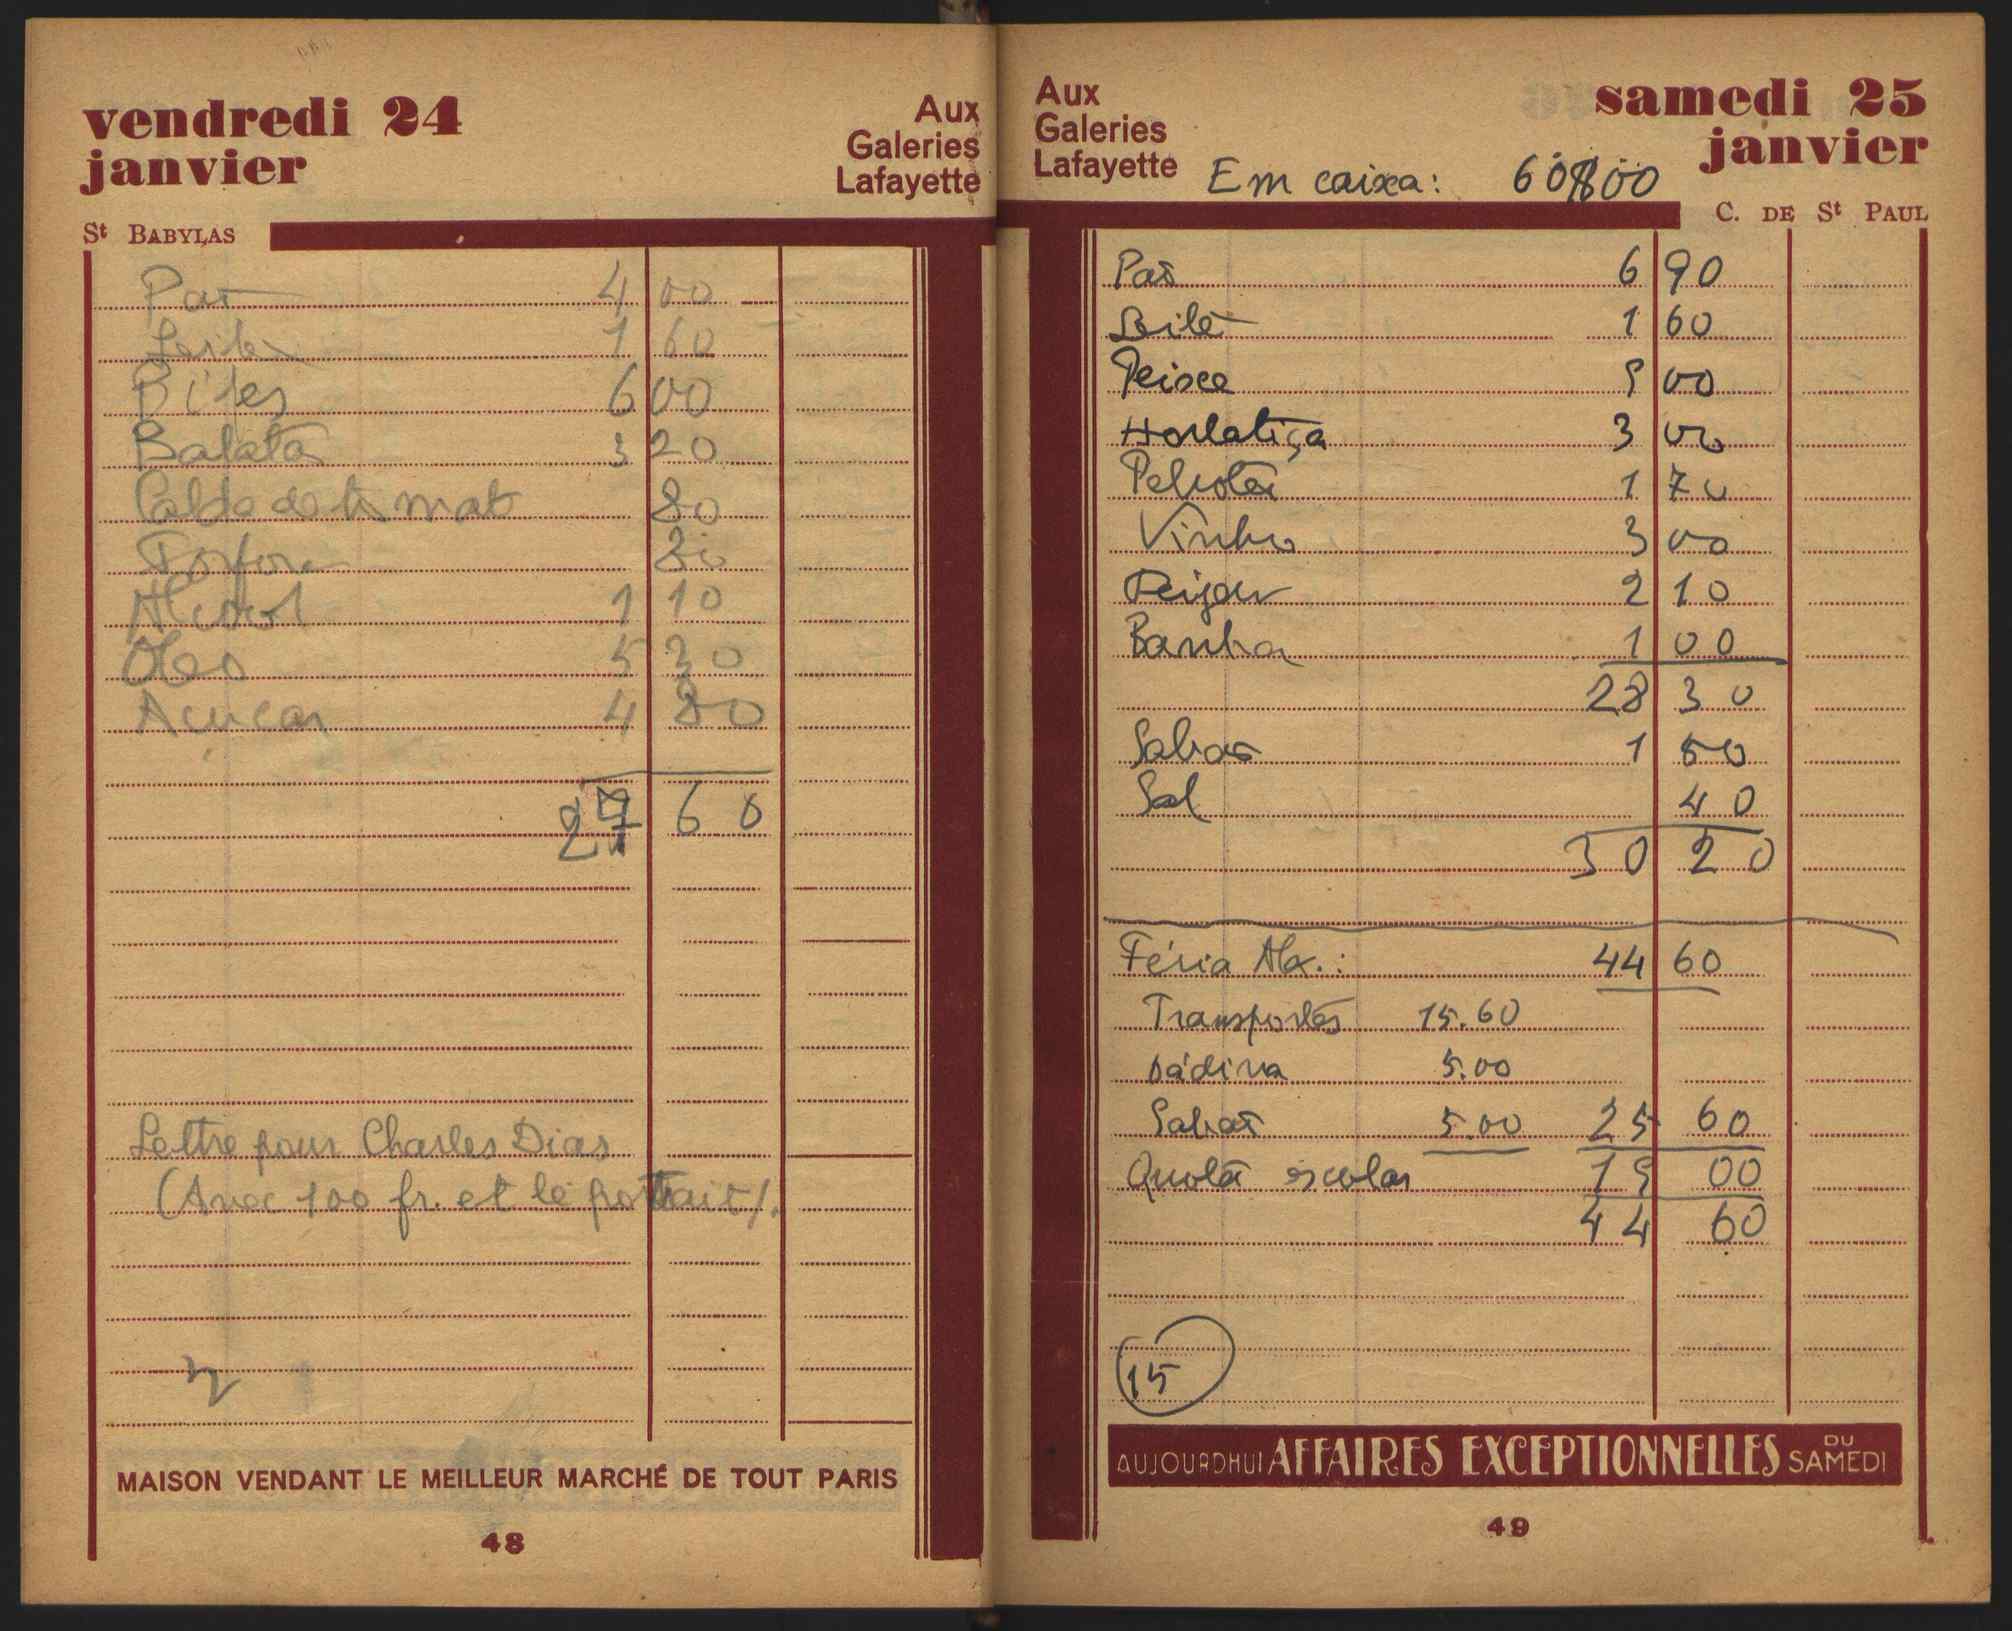 vendredi 24
janvier
Aux
Galeries
Lafayette
St BABYLAS
Pão 4 00
Leite 1 60
Bifes 6 00
Batata 3 20
Calda de tomat 80
Fosforo 80
Alcool 1 10
Oleo 5 30
Açucar 4 80
27 60
Lettre pour Charles Dias
(Avec 100 fr. et le portrait).
MAISON VENDANT LE MEILLEUR MARCHÉ DE TOUT PARIS
48
Aux
Galeries
Lafayette
samedi 25
janvier
Em caixa: 60$00
C. DE St PAUL
Pão 6 90
Leite 1 60
Peixe 9 00
Hortaliça 3 00
Petrotea 1 70
Vinho 3 00
Feijão 2 10
Banha 1 00
28 30
Sabão 1 50
Sal 40
30 20
Féria Alx.: 44 60
Transportes 15.60
Dádiva 5.00
Sabão 5.00 25 60
Quota escolar 19 00
44 60
15
AUJOURDHUI AFFAIRES EXCEPTIONNELLES DU SAMEDI
49